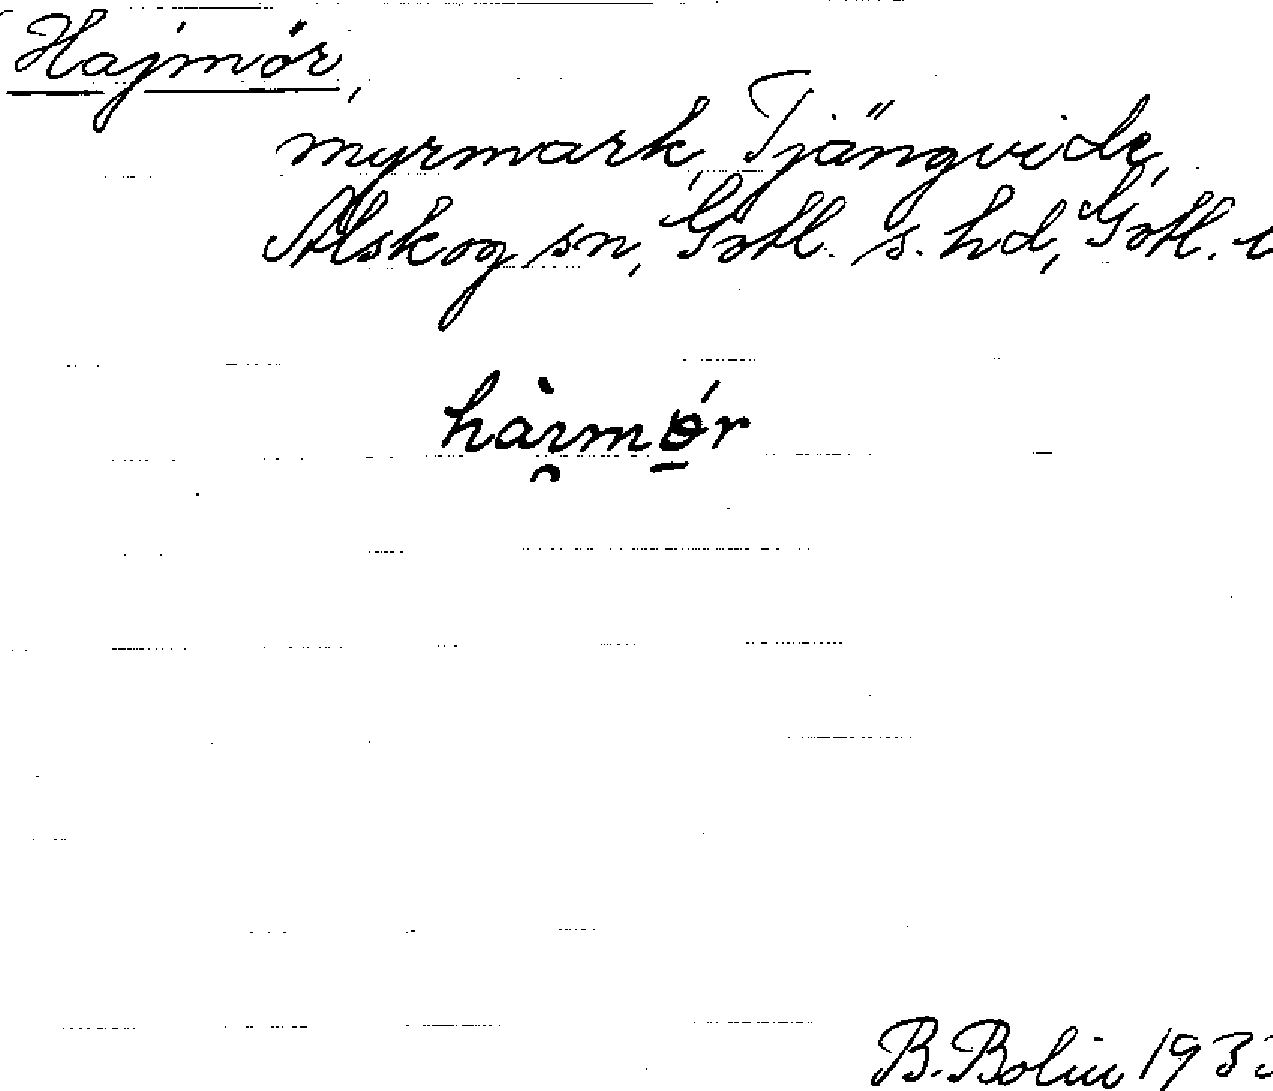 Hajmór,
myrmark, Tjängvide,
Alskog sn, Gotl. s. hd, Gotl.
B. Bolin 193